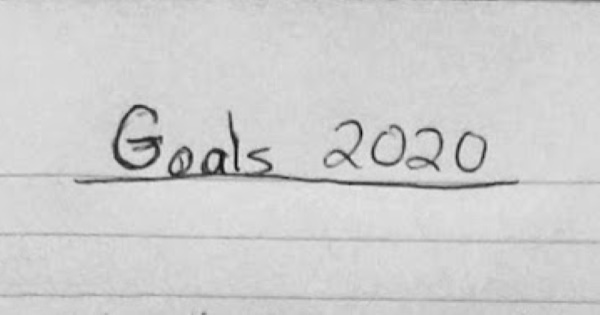 Goals 2020